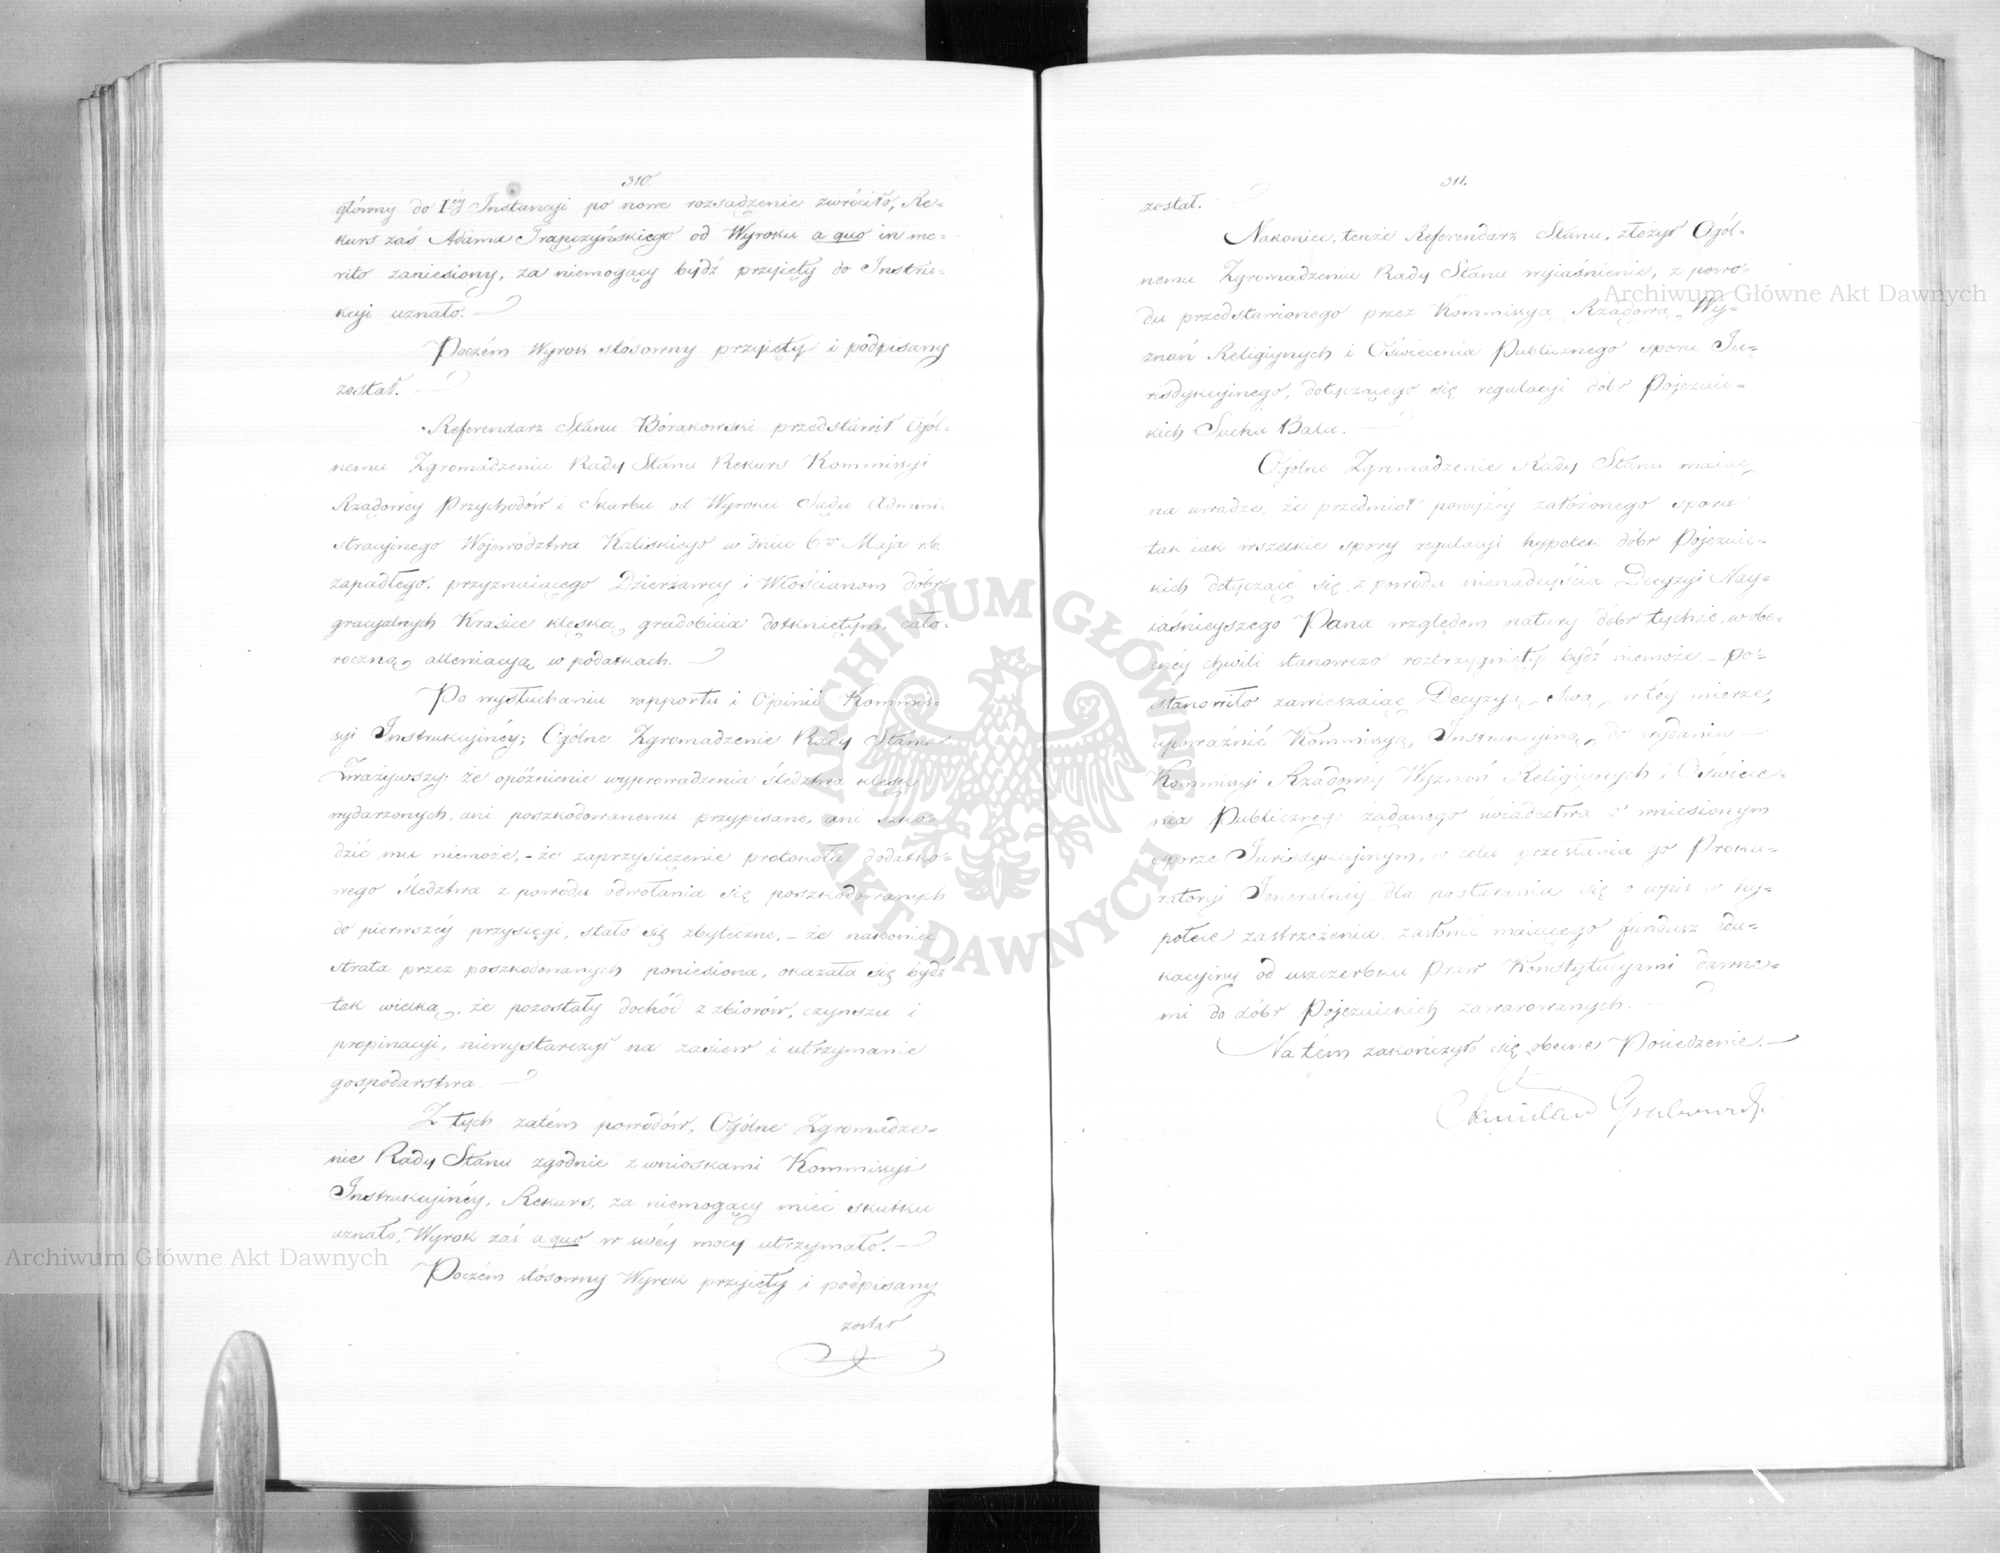 310.
główny do Iéy Instancyi po nowe rozsądzenie zwróciło, Re-
kurs zaś Adama Trąpczyńskiego od Wyroku a quo in me-
rito zaniesiony, za niemogący bydź przyięty do Instru-
kcyi uznało.
Poczém Wyrok stósowny przyięty i podpisany
został.
Referendarz Stanu Bórakowski przedstawił Ogól-
nemu Zgromadzeniu Rady Stanu Rekurs Kommissyi
Rządowéy Przychodów i Skarbu od Wyroku Sądu Admini-
stracyinego Województwa Kaliskiego w dniu 6 Maja r.b.
zapadłego, przyznaiącego Dzierżawcy i Włościanom dóbr
gracyalnych Krasice klęską gradobicia dotkniętym, cało-
roczną allewiacyą w podatkach.
Po wysłuchaniu rapportu i Opinii Kommis-
syi Instrukcyinéy; Ogólne Zgromadzenie Rady Stanu
Zważywszy: że opóźnienie wyprowadzenia śledztwa klęsk
wydarzonych, ani poszkodowanemu przypisane, ani szko-
dzić mu niemoże, - że zaprzysiężenie protokołu dodatko-
wego śledztwa z powodu odwołania się poszkodowanych
do pierwszéy przysięgi, stało się zbyteczne, - że nakoniec
strata przez poszkodowanych poniesiona, okazała się bydź
tak wielką, że pozostały dochód z zbiorów, czynszu i
propinacyi, niewystarczył na zasiew i utrzymanie
gospodarstwa.
Z tych zatém powodów, Ogólne Zgromadze-
nie Rady Stanu zgodnie z wnioskami Kommissyi
Instrukcyinéy, Rekurs, za niemogący mieć skutku
uznało, Wyrok zaś a quo w swéy mocy utrzymało.
Poczém stósowny Wyrok przyięty i podpisany
został
311.
został.
Nakoniec, tenże Referendarz Stanu, złożył Ogól-
nemu Zgromadzeniu Rady Stanu wyiaśnienie, z powo-
du przedstawionego przez Kommissyą Rządową Wy-
znań Religiynych i Oświecenia Publicznego sporu Ju-
risdykcyinego, dotyczącego się regulacyi dóbr Pojezuic-
kich Sucha Bala.
Ogólne Zgromadzenie Rady Stanu maiąc
na uwadze, że przedmiot powyżéy założonego sporu
tak iak wszelkie spory regulacyi hypotek dóbr Pojezuic-
kich dotyczącé się, z powodu nienadeyścia Decyzyi Nay-
iaśnieyszego Pana względem natury dóbr tychże, w obe-
cnéy chwili stanowczo roztrzygnięty bydź niemoże - po-
stanowiło zawieszaiąc Decyzyą swą w téy mierze,
upoważnić Kommissyą Instrukcyiną do wydania
Kommissyi Rządowéy Wyznań Religiynych i Oświece-
nia Publicznego żądanego świadectwa o wniesionym
sporze Jurisdykcyinym, w celu przesłania go Proku-
ratoryi Jeneralnéy, dla postarania się o wpis w hy-
potece zastrzeżenia, zasłonić maiącego fundusz edu-
kacyiny od uszczerbku Praw Konstytucyami dawne-
mi do dóbr Pojezuickich zawarowanych.
Na tém zakończyło się obecne Posiedzenie.
Stanisław Grabowski.
Archiwum Główne Akt Dawnych
Archiwum Główne Akt Dawnych
ARCHIWUM GŁÓWNE AKT DAWNYCH